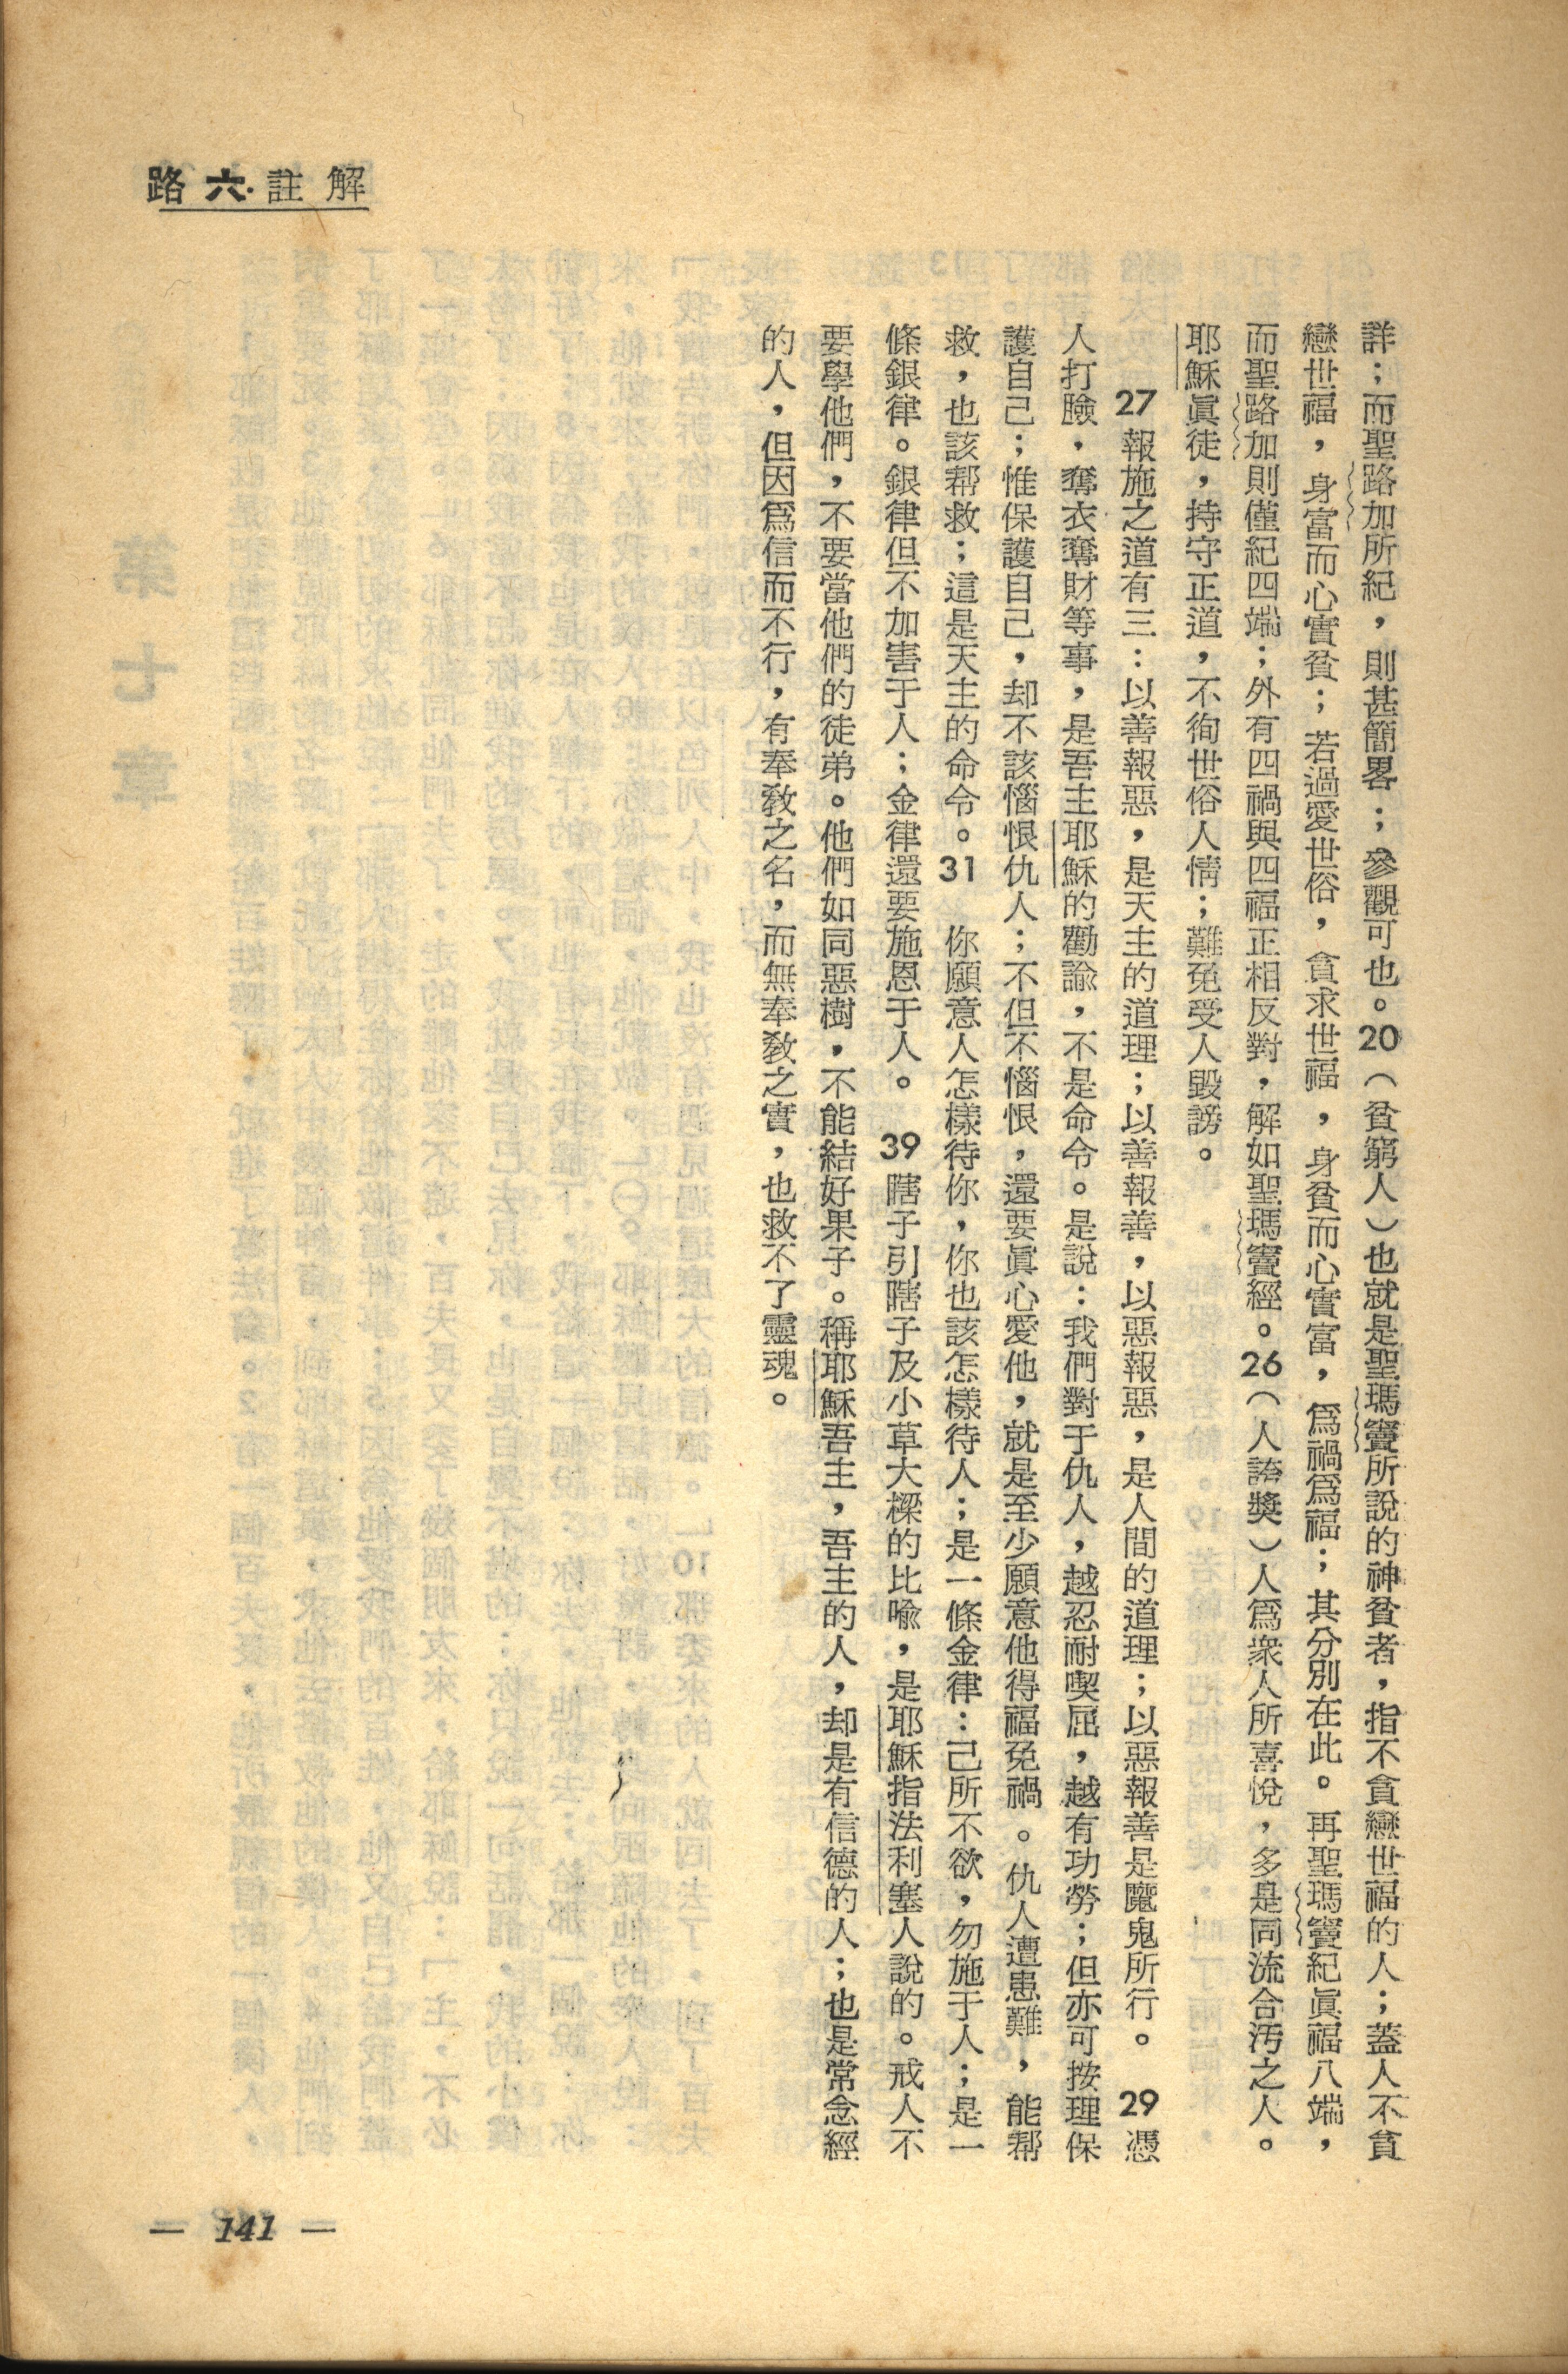 路六·註解
詳；而聖路加所紀，則甚簡畧；參觀可也。20（貧窮人）也就是聖瑪竇所說的神貧者，指不貪戀世福的人；蓋人不貪
戀世福，身富而心實貧；若過愛世俗，貪求世福，身貧而心實富，爲禍爲福；其分別在此。再聖瑪竇紀眞福八端，
而聖路加則僅紀四端；外有四禍與四福正相反對，解如聖瑪竇經。26（人誇獎）人爲衆人所喜悅，多是同流合汚之人。
耶穌眞徒，持守正道，不徇世俗人情；難免受人毀謗。
27報施之道有三：以善報惡，是天主的道理；以善報善，以惡報惡，是人間的道理；以惡報善是魔鬼所行。29憑
人打臉，奪衣奪財等事，是吾主耶穌的勸諭，不是命令。是說：我們對于仇人，越忍耐喫屈，越有功勞；但亦可按理保
護自己；惟保護自己，却不該惱恨仇人；不但不惱恨，還要眞心愛他，就是至少願意他得福免禍。仇人遭患難，能帮
救，也該帮救；這是天主的命令。31你願意人怎樣待你，你也該怎樣待人；是一條金律：己所不欲，勿施于人；是一
條銀律。銀律但不加害于人；金律還要施恩于人。39瞎子引瞎子及小草大樑的比喩，是耶穌指法利塞人說的。戒人不
要學他們，不要當他們的徒弟。他們如同惡樹，不能結好果子。稱耶穌吾主，吾主的人，却是有信德的人；也是常念經
的人，但因爲信而不行，有奉敎之名，而無奉敎之實，也救不了靈魂。
— 141 —